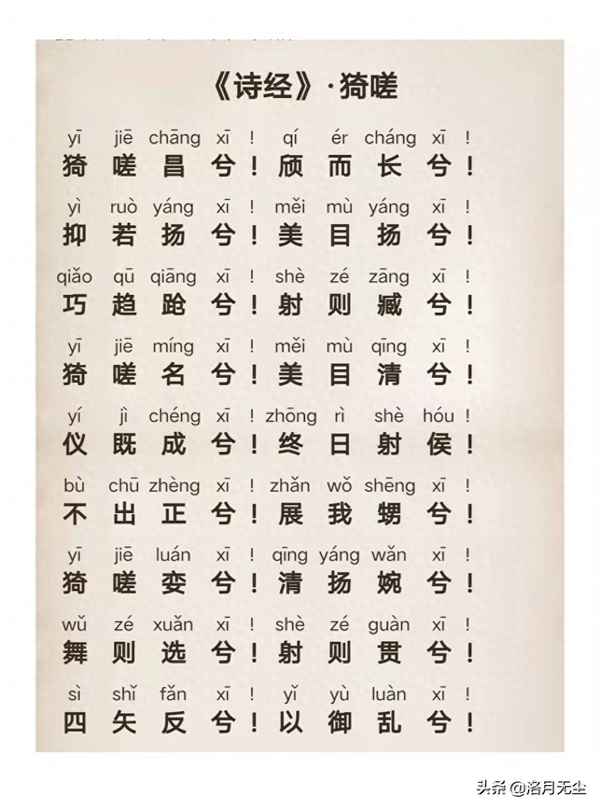 《诗经》·猗嗟
yī jiē chāng xī ! qí ér cháng xī !
猗嗟昌兮！颀而长兮！
yì ruò yáng xī ! měi mù yáng xī !
抑若扬兮！美目扬兮！
qiǎo qū qiāng xī ! shè zé zāng xī !
巧趋跄兮！射则臧兮！
yī jiē míng xī ! měi mù qīng xī !
猗嗟名兮！美目清兮！
yí jì chéng xī ! zhōng rì shè hóu !
仪既成兮！终日射侯！
bù chū zhèng xī ! zhǎn wǒ shēng xī !
不出正兮！展我甥兮！
yī jiē luán xī ! qīng yáng wǎn xī !
猗嗟娈兮！清扬婉兮！
wǔ zé xuǎn xī ! shè zé guàn xī !
舞则选兮！射则贯兮！
sì shǐ fǎn xī ! yǐ yù luàn xī !
四矢反兮！以御乱兮！
头条 @洛月无尘